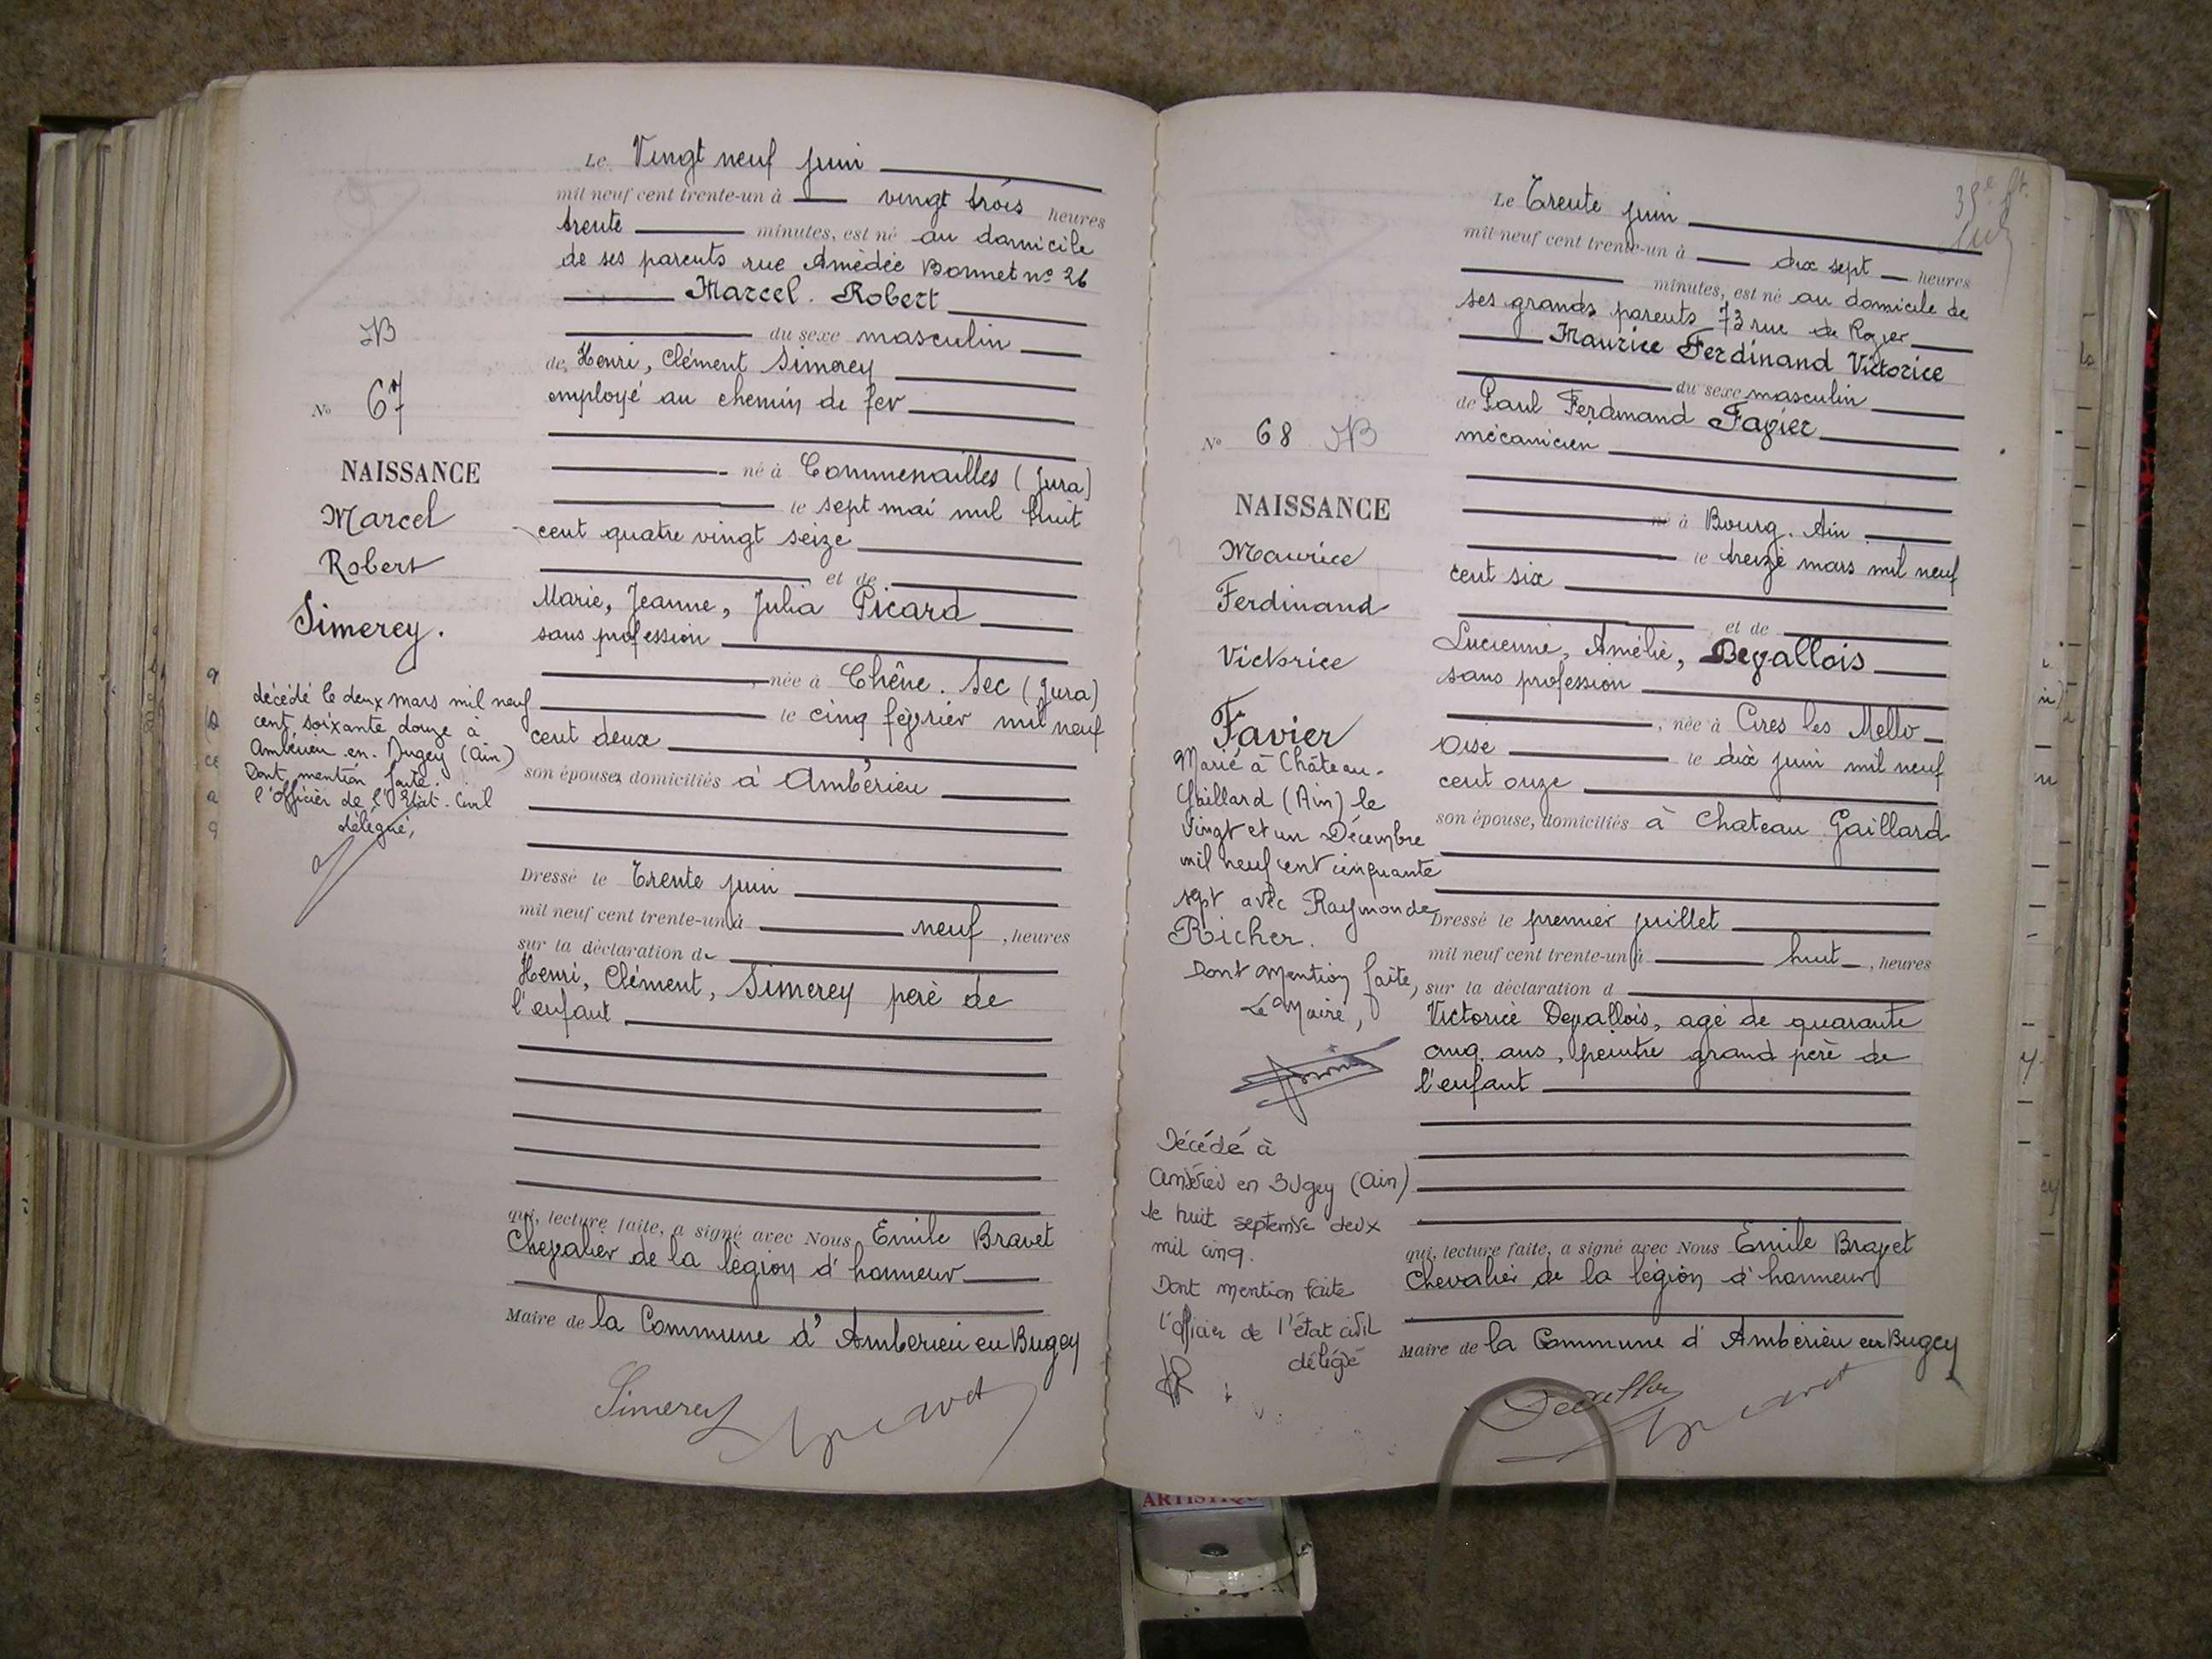 JB
No 67
NAISSANCE
Marcel
Robert
Simerey.
décédé le deux mars mil neuf
cent soixante douze à
Ambérieu en Bugey (Ain)
Dont mention faite.
l'Officier de l'Etat-Civil
délégué,
Le Vingt neuf juin
mil neuf cent trente-un à vingt trois heures
trente minutes, est né au domicile
de ses parents rue Amédée Bonnet no 26
Marcel. Robert
du sexe masculin
de Henri, Clément Simerey
employé au chemin de fer
né à Commenailles (Jura)
le sept mai mil huit
cent quatre vingt seize
et de
Marie, Jeanne, Julia Picard
sans profession
née à Chêne. Sec (Jura)
le cinq février mil neuf
cent deux
son épouse, domiciliés à Ambérieu
Dressé le Trente juin
mil neuf cent trente-un à neuf, heures
sur la déclaration de
Henri, Clément, Simerey père de
l'enfant
qui, lecture faite, a signé avec Nous Emile Bravet
Chevalier de la légion d'honneur
Maire de la Commune d'Ambérieu en Bugey
Simerey Bravet
35e ft.
No 68 JB
NAISSANCE
Maurice
Ferdinand
Victorice
Favier
Marié à Château-
Gaillard (Ain) le
vingt et un Décembre
mil neuf cent cinquante
sept avec Raymonde
Richer.
Dont mention faite,
Le Maire,
Décédé à
Ambérieu en Bugey (Ain)
le huit septembre deux
mil cinq.
Dont mention faite
l'officier de l'état civil
délégué
Le Trente juin
mil neuf cent trente-un à dix sept heures
minutes, est né au domicile de
ses grands parents 73 rue de
Maurice Ferdinand Victorice
du sexe masculin
de Paul Ferdinand Favier
mécanicien
né à Bourg. Ain
le treize mars mil neuf
cent six
et de
Lucienne, Amélie, Devallois
sans profession
, née à Cires les Mello
Oise le dix juin mil neuf
cent onze
son épouse, domiciliés à Chateau Gaillard
Dressé le premier juillet
mil neuf cent trente-un à huit, heures
sur la déclaration d
Victorice Devallois, agé de quarante
cinq ans, peintre grand père de
l'enfant
qui, lecture faite, a signé avec Nous Emile Bravet
Chevalier de la légion d'honneur
Maire de la Commune d'Ambérieu en Bugey
Devallois Bravet
ARTISTIQUE